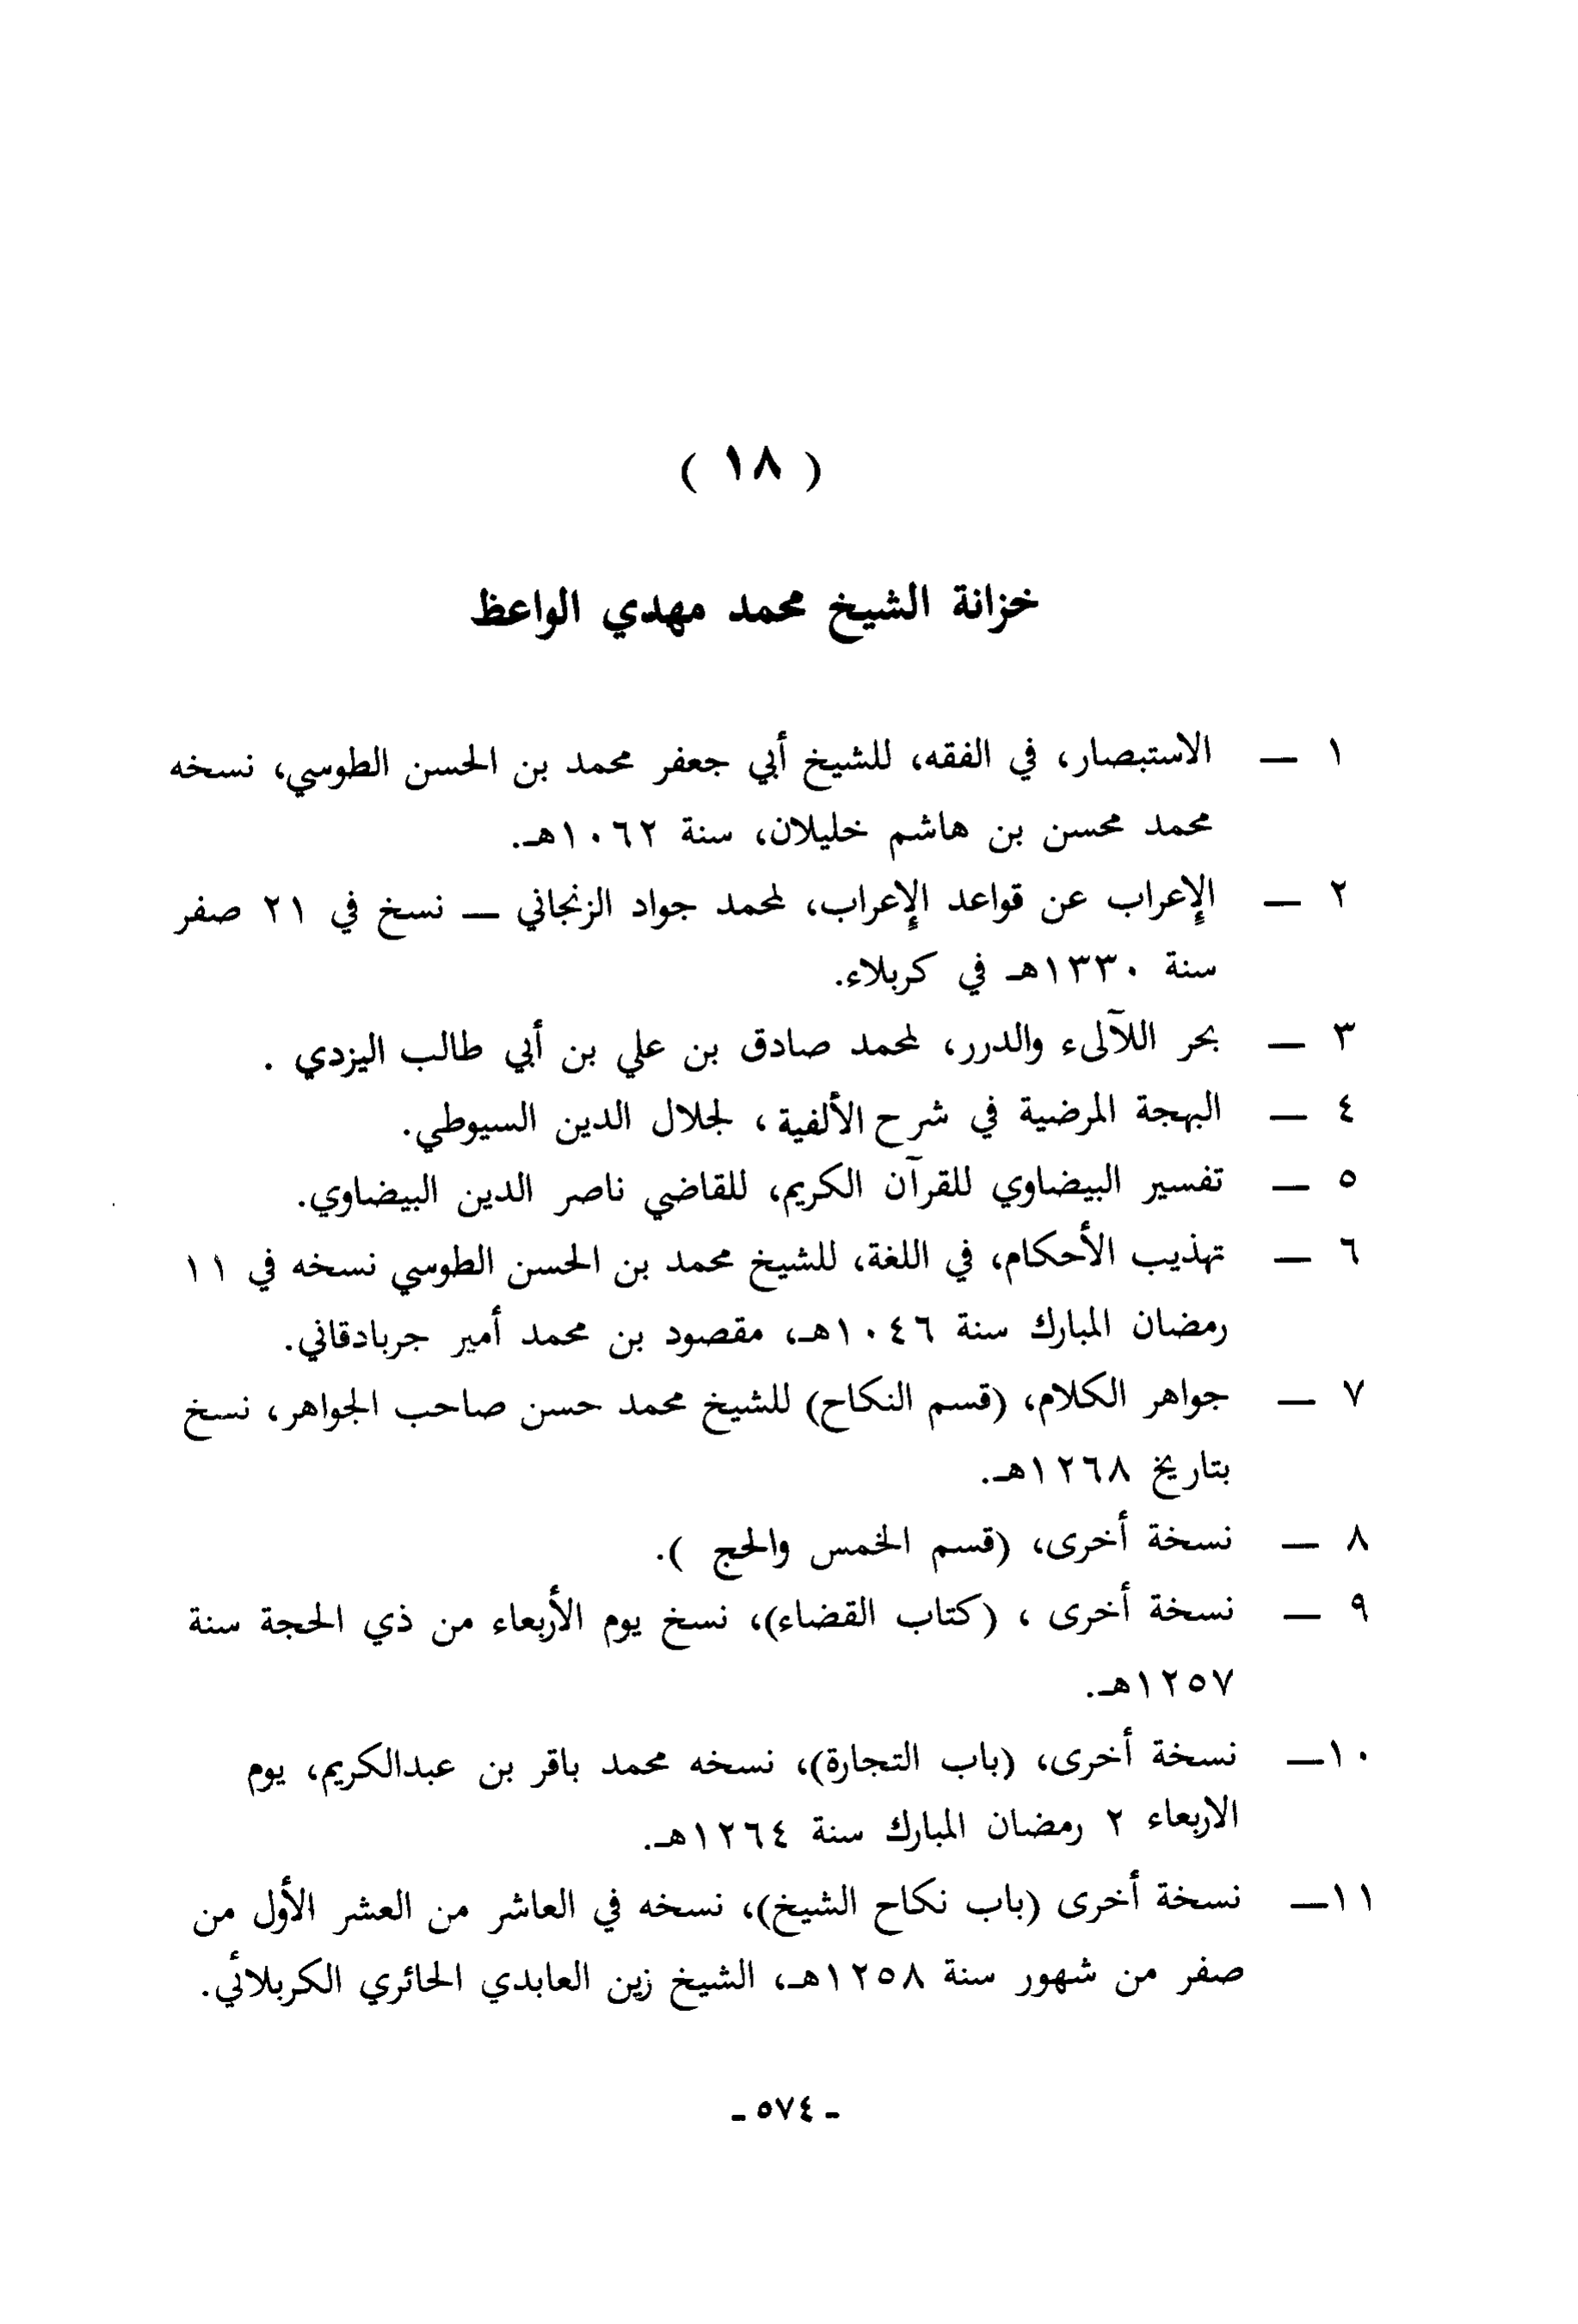 ( ١٨ )
خزانة الشيخ محمد مهدي الواعظ
١ — الاستبصار، في الفقه، للشيخ أبي جعفر محمد بن الحسن الطوسي، نسخه
محمد محسن بن هاشم خليلان، سنة ١٠٦٢هـ.
٢ — الإعراب عن قواعد الإعراب، لمحمد جواد الزنجاني — نسخ في ٢١ صفر
سنة ١٣٣٠هـ في كربلاء.
٣ — بحر اللآلىء والدرر، لمحمد صادق بن علي بن أبي طالب اليزدي .
٤ — البهجة المرضية في شرح الألفية، لجلال الدين السيوطي.
٥ — تفسير البيضاوي للقرآن الكريم، للقاضي ناصر الدين البيضاوي.
٦ — تهذيب الأحكام، في اللغة، للشيخ محمد بن الحسن الطوسي نسخه في ١١
رمضان المبارك سنة ١٠٤٦هـ، مقصود بن محمد أمير جربادقاني.
٧ — جواهر الكلام، (قسم النكاح) للشيخ محمد حسن صاحب الجواهر، نسخ
بتاريخ ١٢٦٨هـ.
٨ — نسخة أخرى، (قسم الخمس والحج ).
٩ — نسخة أخرى ، (كتاب القضاء)، نسخ يوم الأربعاء من ذي الحجة سنة
١٢٥٧هـ.
١٠— نسخة أخرى، (باب التجارة)، نسخه محمد باقر بن عبدالكريم، يوم
الاربعاء ٢ رمضان المبارك سنة ١٢٦٤هـ.
١١— نسخة أخرى (باب نكاح الشيخ)، نسخه في العاشر من العشر الأول من
صفر من شهور سنة ١٢٥٨هـ، الشيخ زين العابدي الحائري الكربلائي.
- ٥٧٤ -